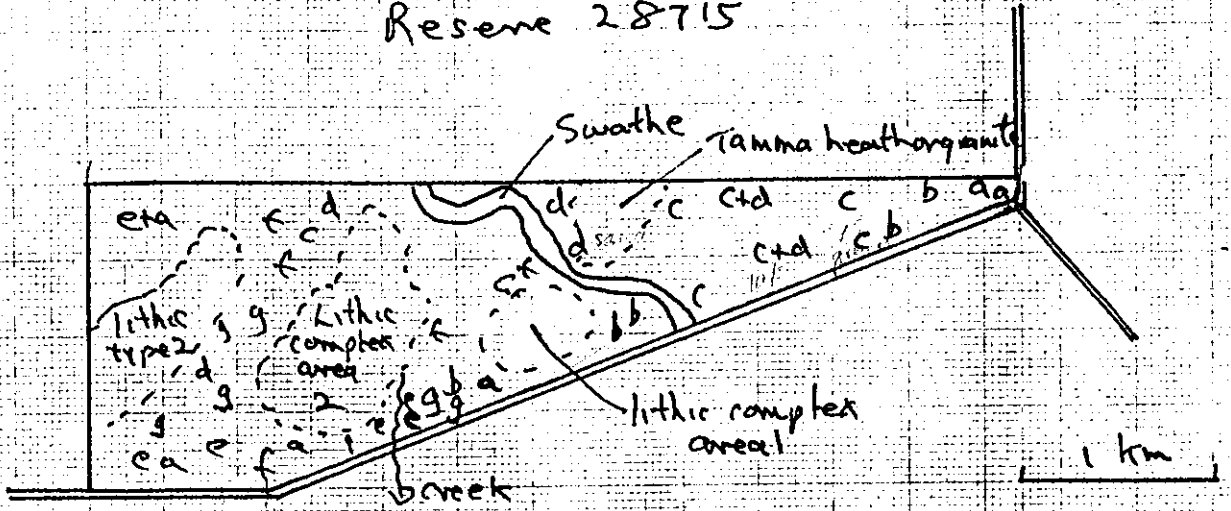 Reserve 28715
Swathe
Tamma heath on granite
e+a
d
c
d
c
c+d
c
b
a
a
d
c+d
c
b
c
b
b
lithic
type 2
g
g
Lithic
complex
area
2
d
g
g
e
a
e
f
a
e
g
b
a
g
lithic complex
area 1
creek
1 km